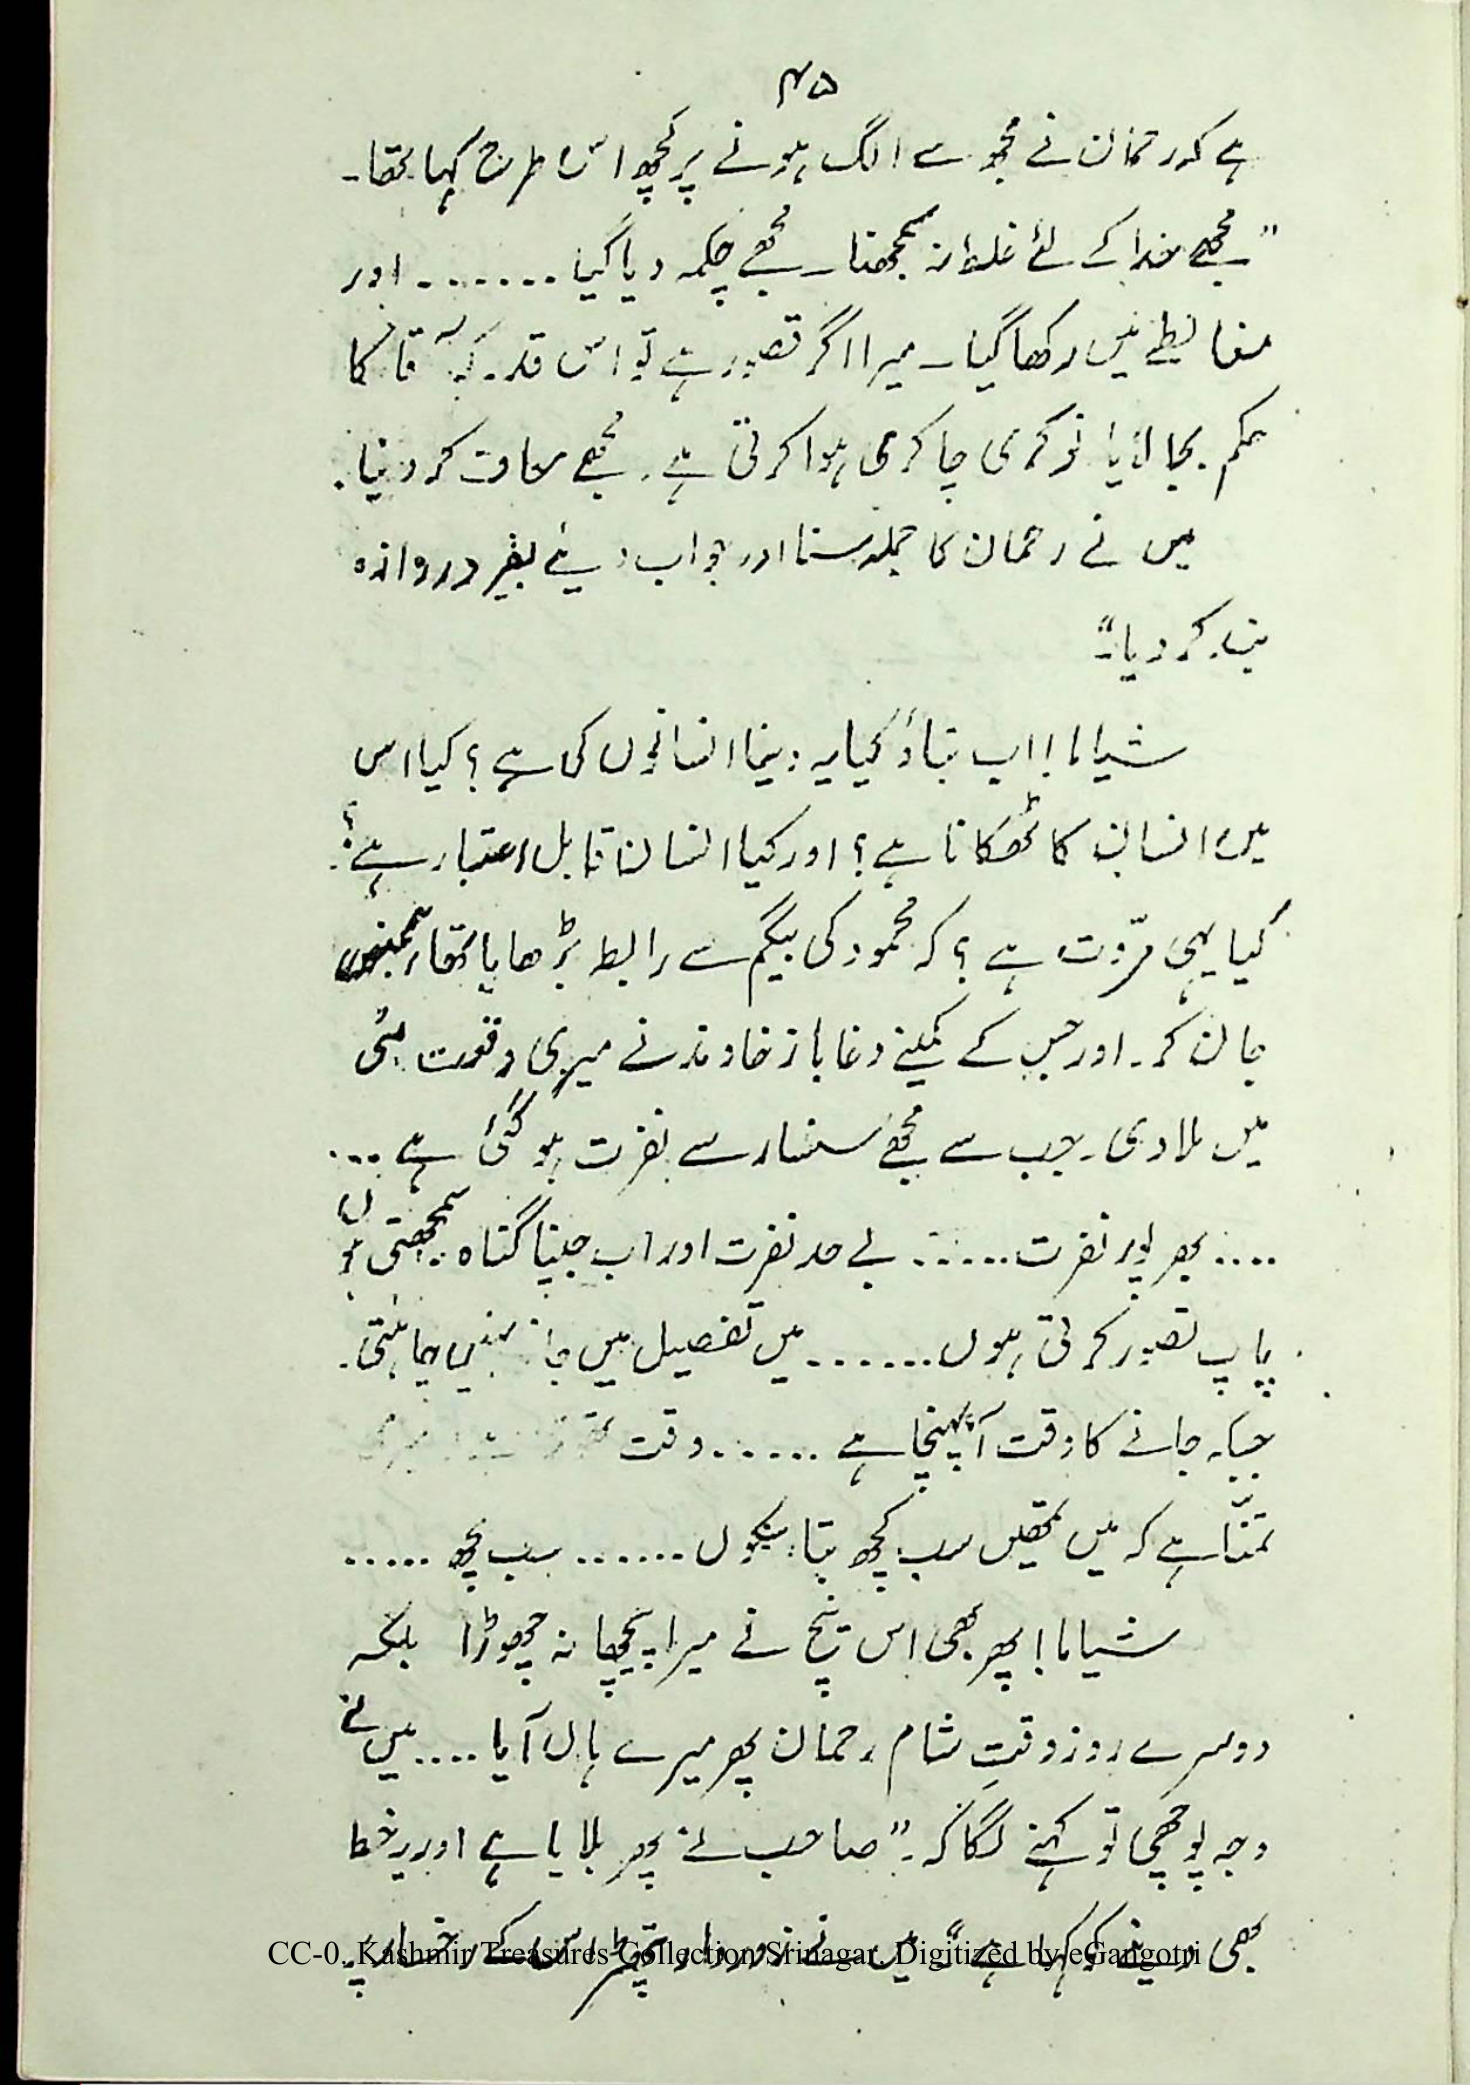 ۴۵
ہے کہ رحمان نے مجھ سے الگ ہونے پر کچھ اس طرح کہا تھا۔
”مجھے خدا کے لئے غلط نہ سمجھنا۔ مجھے چکمہ دیا گیا ....... اور
مغالطے میں رکھا گیا۔ میرا اگر قصور ہے تو اس قدر کہ آقا کا
حکم بجا لایا نوکری چاکری ہوا کرتی ہے۔ مجھے معاف کر دینا۔
میں نے رحمان کا جملہ سنا اور جواب دیئے بغیر دروازہ
بند کر دیا“۔
شیاما! اب بتاؤ کیا یہ دنیا انسانوں کی ہے؟ کیا اس
میں انسان کا ٹھکانا ہے؟ اور کیا انسان قابل اعتبار ہے؟
کیا یہی مروّت ہے؟ کہ محمود کی بیگم سے رابطہ بڑھایا تھا،
جان کر۔ اور جس کے کمینے دغا باز خاوند نے میری وقعت مٹی
میں ملا دی۔ جب سے مجھے سنسار سے نفرت ہو گئی ہے ...
.... بھرپور نفرت ...... بے حد نفرت اور اب جینا گناہ سمجھتی ہوں
پاپ تصور کرتی ہوں ....... میں تفصیل میں جانا نہیں چاہتی۔
جبکہ جانے کا وقت آ پہنچا ہے ...... وقت
تمنّا ہے کہ میں تمھیں سب کچھ بتا سکوں ...... سب کچھ .....
شیاما! پھر بھی اس نیچ نے میرا پیچھا نہ چھوڑا بلکہ
دوسرے روز وقتِ شام رحمان پھر میرے ہاں آیا .... میں نے
وجہ پوچھی تو کہنے لگا کہ۔ ”صاحب نے پھر بلایا ہے اور یہ خط
بھی دینے کو کہا ہے“ میں نے زوردار تھپڑ اس کے رخسار پہ
CC-0. Kashmir Treasures Collection Srinagar. Digitized by eGangotri